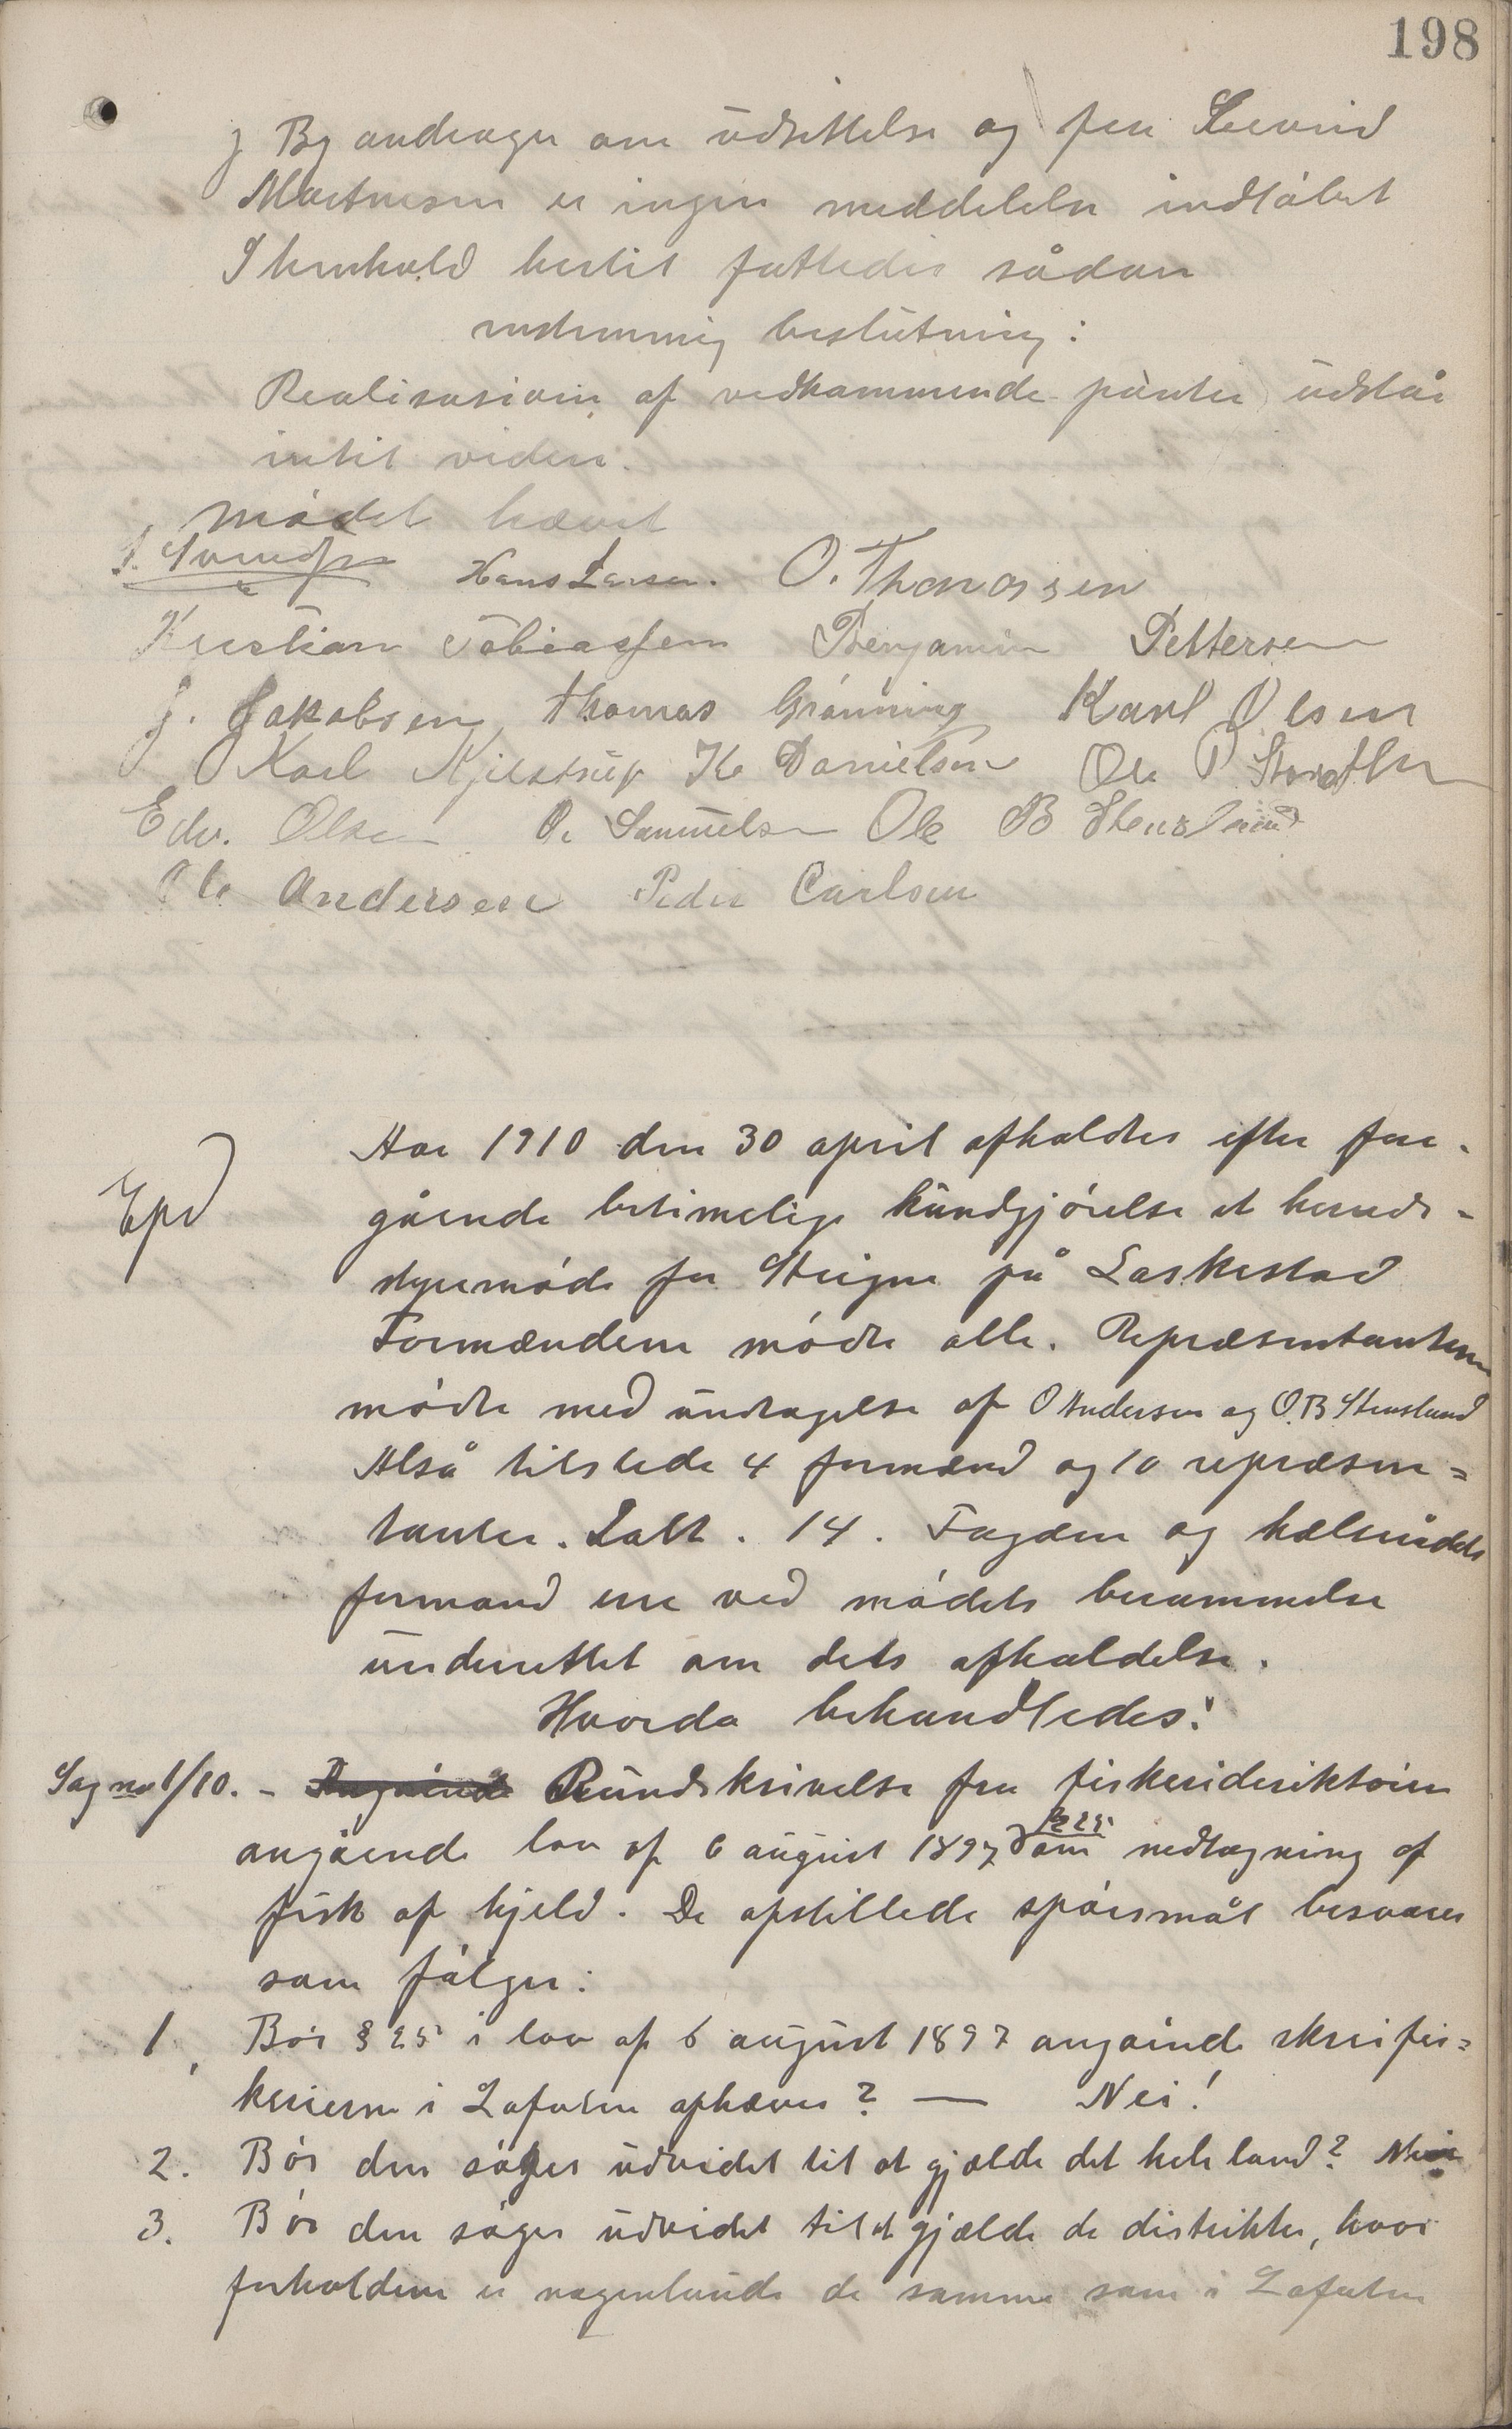 198
J By andrager om udsettelse og fra Sevrin
Martinesen er ingen meddelelse indløbet
I henhold hertil fattedes sådan
enstemmig beslutning:
Realisasionen af vedkommende panter udstår
intil videre.
mødet hævet
Hans Larsen. O. Thomassen
Kristian Tobiassen Benjamin Pettersen
J. Jakobsen Thomas Grønning Karl Olsen
Karl Kjelstrup K. Danielsen Ole P
Edv. Olsen O. Samuelsen Ole B Stenslund
Ole Andersen Peder Carlsen
Aar 1910 den 30 april afholdtes efter fore-
Epd
gående betimelige kundgjørelse et herreds-
styremøde for Steigen på Laskestad
Formændene mødte alle. Repræsentanterne
mødte med undtagelse af O Andersen og O.B Stenslund
Altså tilstede 4 formænd og 10 repræsen=
tanter. Ialt. 14. Fogden og helserådets
formand ere ved mødets berammelse
underettet om dets afholdelse.
Hvorda behandledes:
Sag no 1/10. - Rundskrivelse fra fiskeridirektøren
angående lov af 6 august 1897 § 25 om nedlægning af
fisk af hjeld. De opstillede spørsmål besvares
som følger:
1, Bør § 25 i lov af 6 august 1897 angående skreifis=
keriene i Lofoten ophæves? — Nei!
2. Bør den søges udvidet til at gjælde det hele land? Nei
3. Bør den søges udvidet til at gjælde de distrikter, hvor
forholdene er nogenlunde de samme som i Lofoten